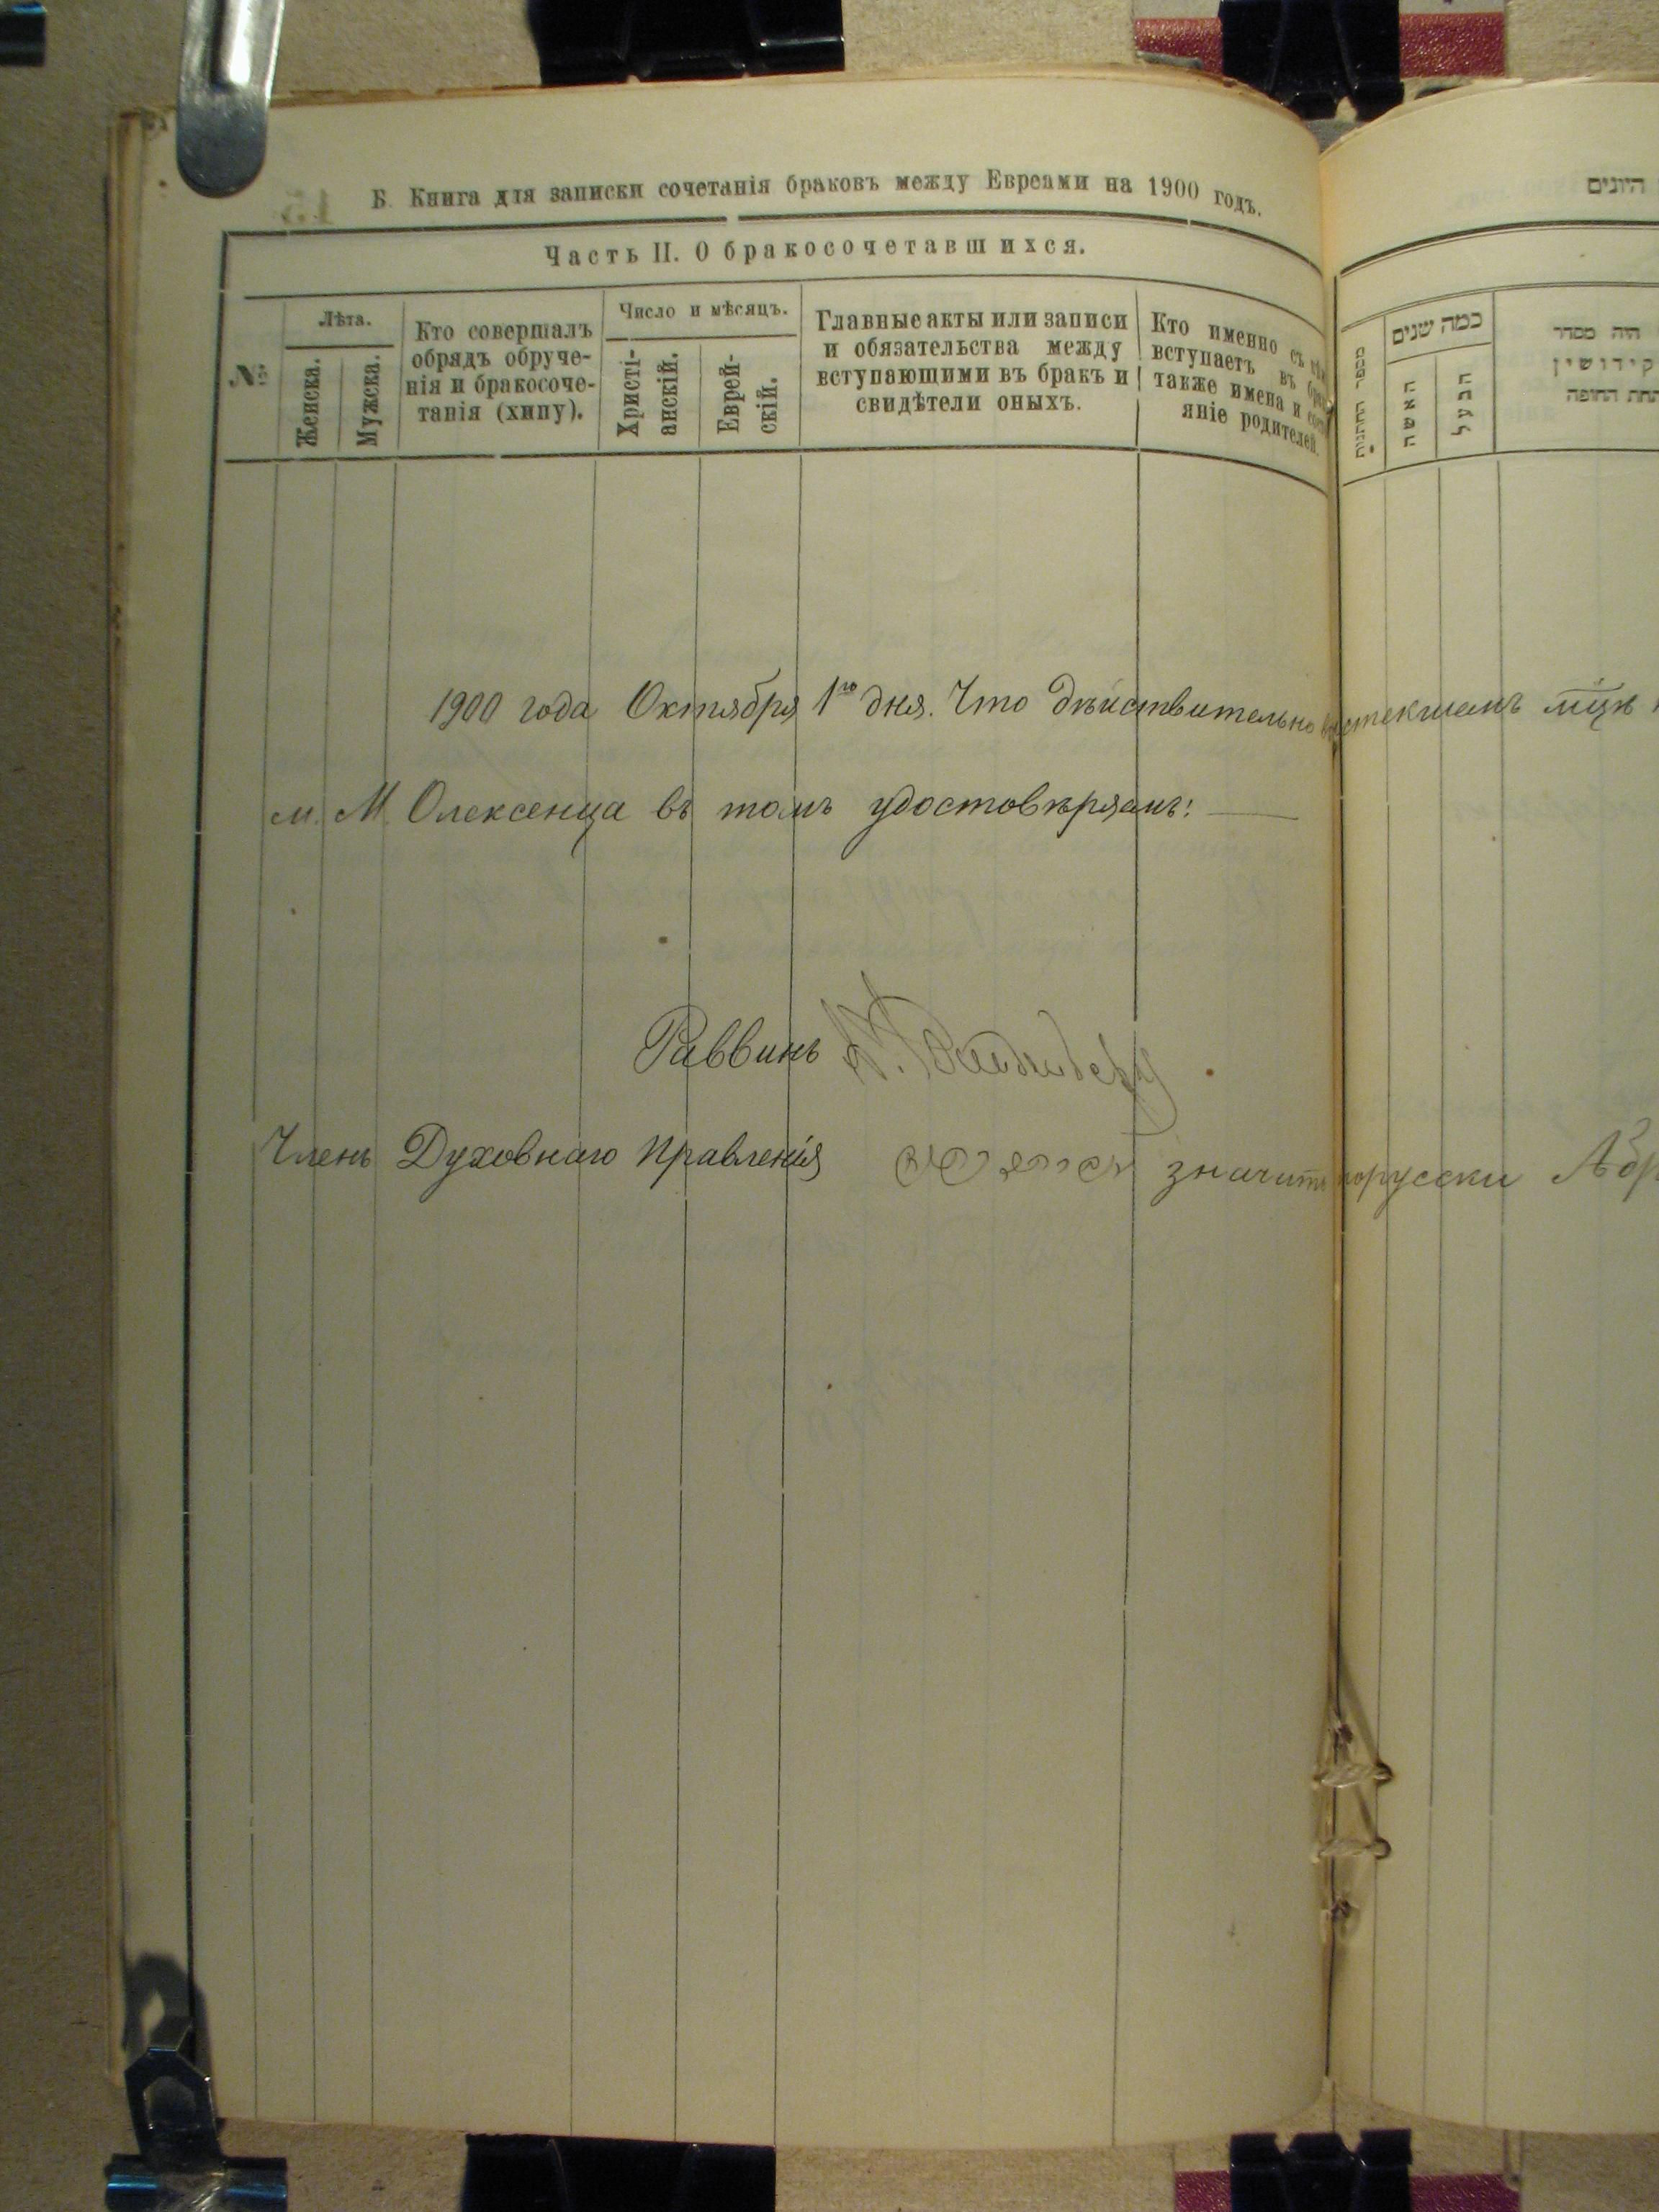 Б. Книга для записки сочетанія браковъ между Евреами на 1900 годъ.
Часть II. О бракосочетавшихся.
№
Лѣта.
Женска.
Мужска.
Кто совершалъ
обрядъ обруче-
нія и бракосоче-
танія (хипу).
Число и мѣсяцъ.
Христі-
анскій.
Еврей-
скій.
Главные акты или записи
и обязательства между
вступающими въ бракъ и
свидѣтели оныхъ.
Кто именно съ
вступаетъ въ
также имена и
яніе родителей.
1900 года Октября 1го дня. Что дѣйствительно истекшемъ мцѣ
м. М. Олексенца въ томъ удостовѣряемъ:
Раввинъ
Членъ Духовнаго Правленія значитъ порусски Абр
היונים
מספר החתונות
כמה שנים
האשה
הבעל
היה מסדר
קידושין
תחת החופה